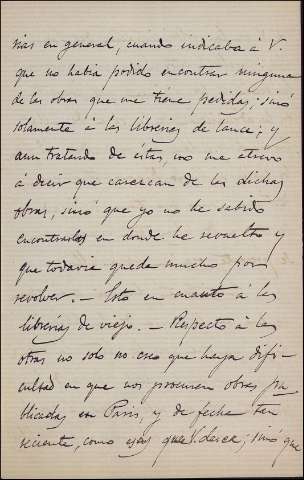 rias en general, cuando indicaba á V.
que no habia podido encontrar ninguna
de las obras que me tiene pedidas; sinó
solamente á las librerias de lance; y
aun tratando de éstas, no me atrevo
á decir que carezcan de las dichas
obras, sinó que yo no he sabido
encontrarlas en donde he revuelto y
que todavia queda mucho por
revolver. — Esto en cuanto á las
librerías de viejo. — Respecto á las
otras no solo no creo que haya difi-
cultad en que nos procuren obras pu
blicadas en Paris, y de fecha tan
reciente, como esas que V. desea; sinó que